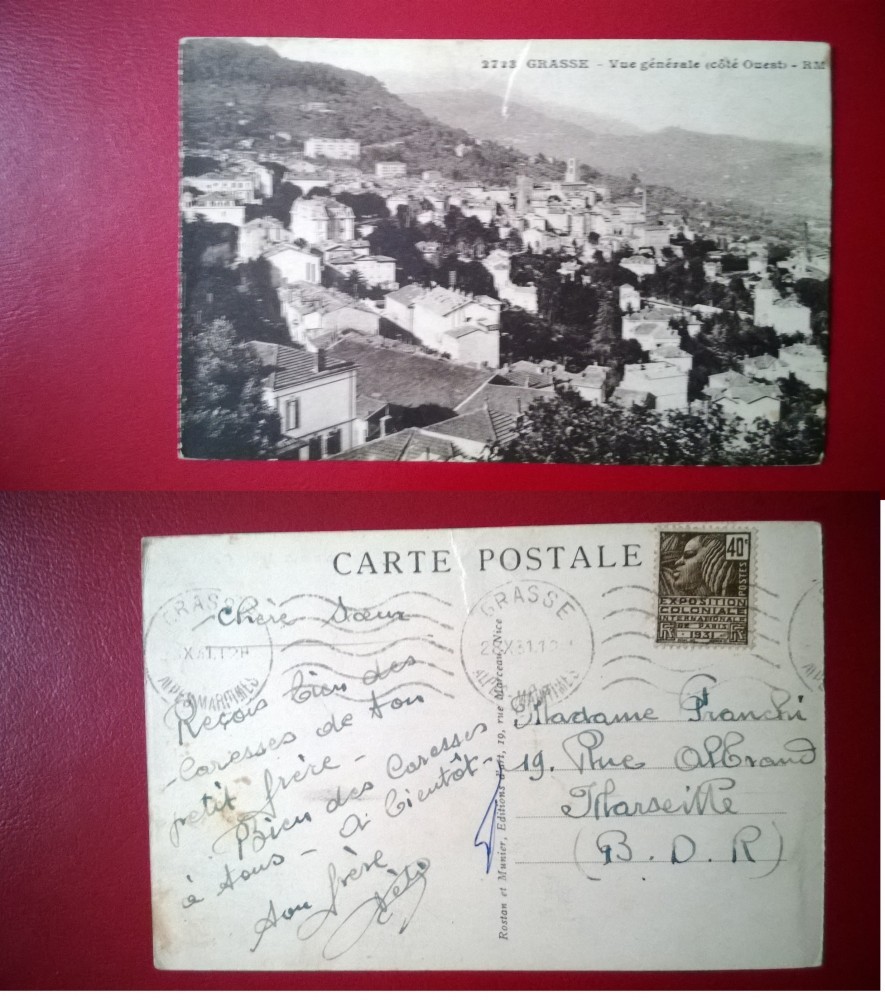 2723 GRASSE - Vue générale (côté Ouest) - RM
CARTE POSTALE
40c
POSTES
EXPOSITION
COLONIALE
INTERNATIONALE
DE PARIS
1931
GRASSE
X31.12H
ALPES MARITIMES
GRASSE
28X31.12
ALPES MARITIMES
Chère Sœur
Reçois bien des
Caresses de ton
petit frère -
Bien des Caresses
à tous - à bientôt -
ton frère
Rostan et Munier, Editions d'art, 19, rue Marceau, Nice
Madame Franchi
19. Rue Albrand
Marseille
(B. D. R)